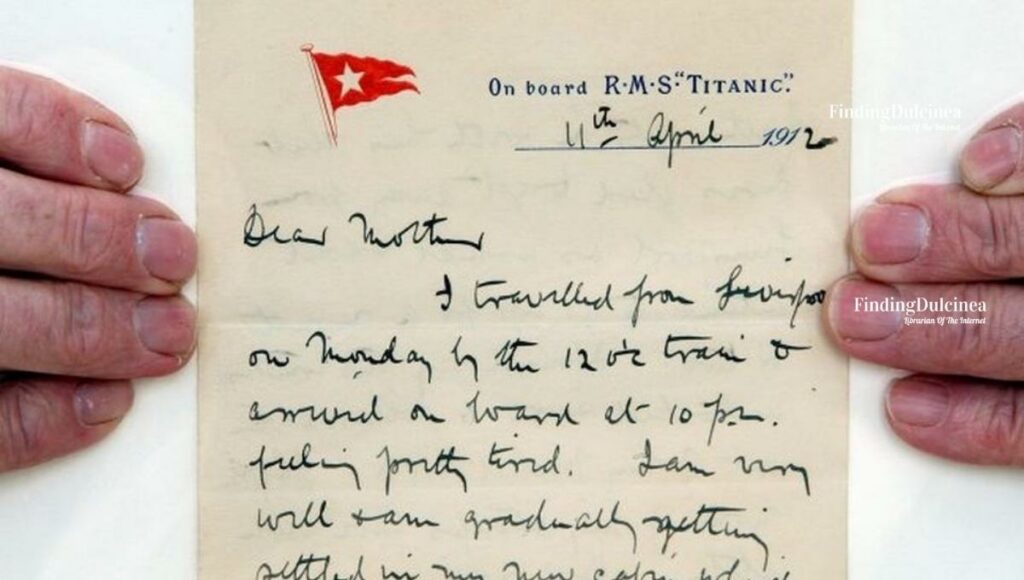 On board R·M·S·"TITANIC".
11th April 1912
FindingDulcinea
Librarian Of The Internet
Dear Mother
I travelled from Liverpoo
FindingDulcinea
Librarian Of The Internet
on Monday by the 12 o'c train &
arrived on board at 10 p.m.
feeling pretty tired. I am very
well & am gradually getting
settled in my new cabin